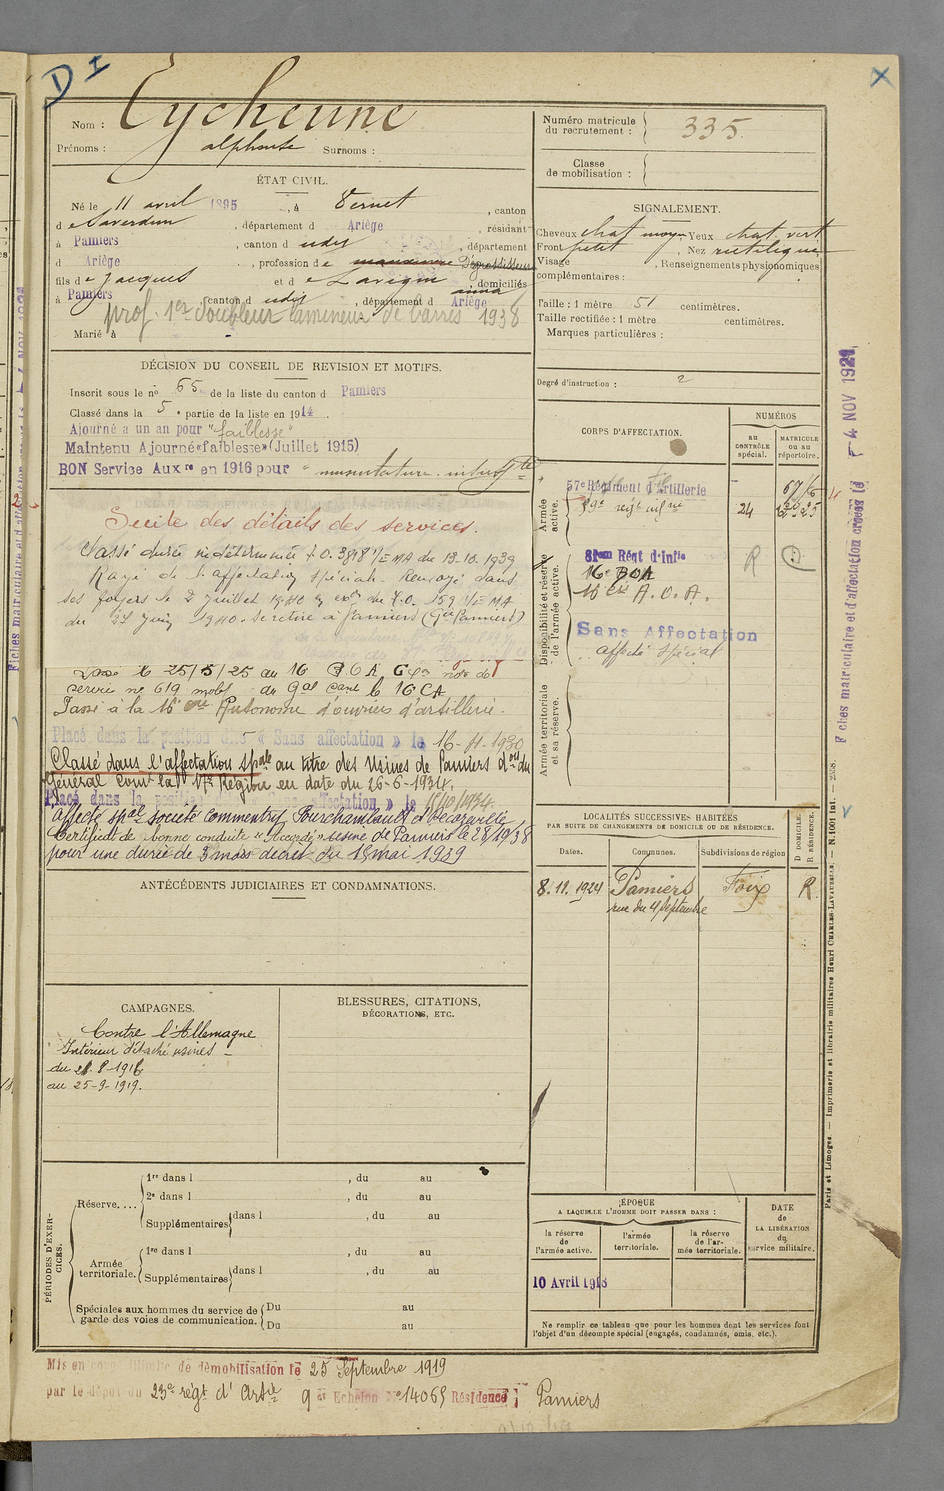 D I
X
Nom : Eycheune
Prénoms : alphonse Surnoms :
Numéro matricule du recrutement : 335.
Classe de mobilisation :
ÉTAT CIVIL.
Né le 11 avril 1895, à Vernet, canton
de Saverdun, département d Ariège, résidant
à Pamiers, canton d udit, département
d Ariège, profession de manœuvre Dégrossisseur
fils de Jacques et de Lavigne anna, domiciliés
à Pamiers canton d udit, département d Ariège
prof. 1er Doubleur lamineur de barres 1938
Marié à
SIGNALEMENT.
Cheveux chat moyen, Yeux chat. vert
Front petit, Nez rectiligne
Visage, Renseignements physionomiques
complémentaires :
Taille : 1 mètre 51 centimètres.
Taille rectifiée : 1 mètre centimètres.
Marques particulières :
Degré d'instruction : 2
DÉCISION DU CONSEIL DE REVISION ET MOTIFS.
Inscrit sous le no 65 de la liste du canton d Pamiers
Classé dans la 5e partie de la liste en 1914
Ajourné à un an pour "faiblesse"
Maintenu Ajourné «faiblesse» (Juillet 1915)
BON Service Auxre en 1916 pour " musculature. insufte
Suite des détails des services.
Classé durée indéterminée D.O. 3818 1/E MA du 13.10.1939
Rayé de l'affectation spéciale Renvoyé dans
ses foyers le 2 Juillet 1940
du 24 Juin 1940. Se retire à Pamiers
Passé le 25/5/25 au 16 B.O.A
service no 619 mobt du Gal Cant le 16 CA
Passé à la 16e Cie Autonome d'ouvriers d'artillerie.
Placé dans la position dite « Sans affectation » le 16-11-1930
Classé dans l'affectation spale au titre des Usines de Pamiers
Général Comt la 17e Région en date du 26-6-1934.
Placé dans la position affectation » le 15/10/1934.
affecté spal société Commentry Fourchambault et Decazeville
Certificat de bonne conduite « Accordé » usine de Pamiers le 28/19/38
pour une durée de 3 mois décret du 18 mai 1939
CORPS D'AFFECTATION.
NUMÉROS
AU CONTRÔLE spécial.
MATRICULE OU AU répertoire.
Armée active.
57e Régiment d'Artillerie
59e régt infrie 24
Disponibilité et réserve de l'armée active.
81em Régt d'Infie R
16e BOA
16 Cie A.O.A.
Sans Affectation
affecté spécial
Armée territoriale et sa réserve.
LOCALITÉS SUCCESSIVES HABITÉES
PAR SUITE DE CHANGEMENTS DE DOMICILE OU DE RÉSIDENCE.
Dates. Communes. Subdivisions de région D DOMICILE. R RÉSIDENCE.
8.11.1924 Pamiers Foix R
rue du 4 Septembre
ANTÉCÉDENTS JUDICIAIRES ET CONDAMNATIONS.
CAMPAGNES.
Contre l'Allemagne
Intérieur détaché usines
du 21-8-1916
au 25-9-1919.
BLESSURES, CITATIONS,
DÉCORATIONS, ETC.
PÉRIODES D'EXERCICES.
Réserve....
1re dans l , du au
2e dans l , du au
Supplémentaires dans l , du au
Armée territoriale.
1re dans l , du au
Supplémentaires dans l , du au
Spéciales aux hommes du service de garde des voies de communication.
Du au
Du au
ÉPOQUE
A LAQUELLE L'HOMME DOIT PASSER DANS :
la réserve de l'armée active.
l'armée territoriale.
la réserve de l'armée territoriale.
DATE de LA LIBÉRATION du service militaire.
10 Avril 1918
Ne remplir ce tableau que pour les hommes dont les services font
l'objet d'un décompte spécial (engagés, condamnés, omis, etc.).
Mis en congé illimité de démobilisation le 25 Septembre 1919
par le dépôt du 23e régt d'Artie 9e Echelon No 14065 Résidence : Pamiers
Fiches matriculaire et d'affectation créées le - 4 NOV 1921
Paris et Limoges. — Imprimerie et librairie militaires Henri CHARLES-LAVAUZELLE. — N. 1001 int.